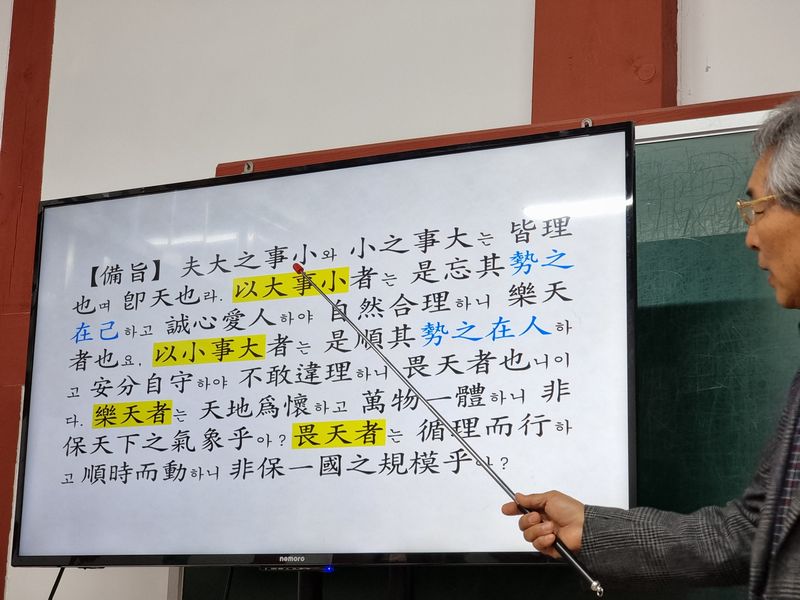 【備旨】 夫大之事小와 小之事大는 皆理
也며 卽天也라. 以大事小者는 是忘其勢之
在己하고 誠心愛人하야 自然合理하니 樂天
者也요, 以小事大者는 是順其勢之在人하
고 安分自守하야 不敢違理하니 畏天者也니이
다. 樂天者는 天地爲懷하고 萬物一體하니 非
保天下之氣象乎아? 畏天者는 循理而行하
고 順時而動하니 非保一國之規模乎아?
nemoro